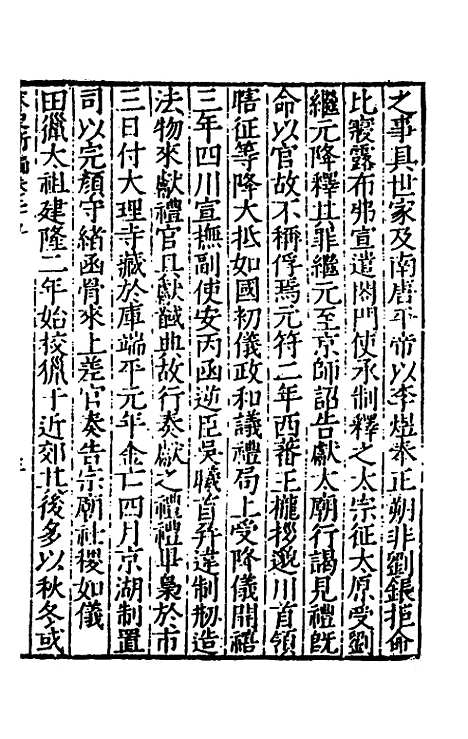 之事具世家及南唐平帝以李煜奉正朔非劉鋹拒命
比寢露布弗宣遣閤門使承制釋之太宗征太原受劉
繼元降釋其罪繼元至京師詔告獻太廟行謁見禮旣
命以官故不稱俘焉元符二年西蕃王櫳拶邈川首領
瞎征等降大抵如國初儀政和議禮局上受降儀開禧
三年四川宣撫副使安丙函逆臣吳曦首幷違制刱造
法物來獻禮官具獻馘典故行奏獻之禮禮畢梟於市
三日付大理寺藏於庫端平元年金亡四月京湖制置
司以完顏守緒函骨來上差官奏告宗廟社稷如儀
田獵太祖建隆二年始校獵于近郊其後多以秋冬或